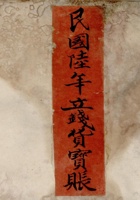 民國陸年立錢貨寶賬